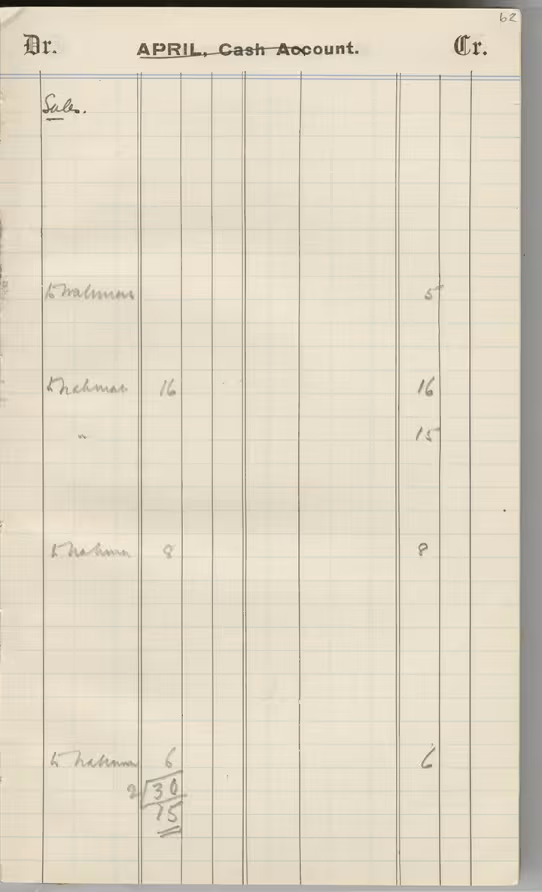 62
Dr. APRIL, Cash Account. Cr.
Sales.
to 5
to Nahman 16 16
" 15
to Nahman 8 8
to Nahman 6 6
2 30
15